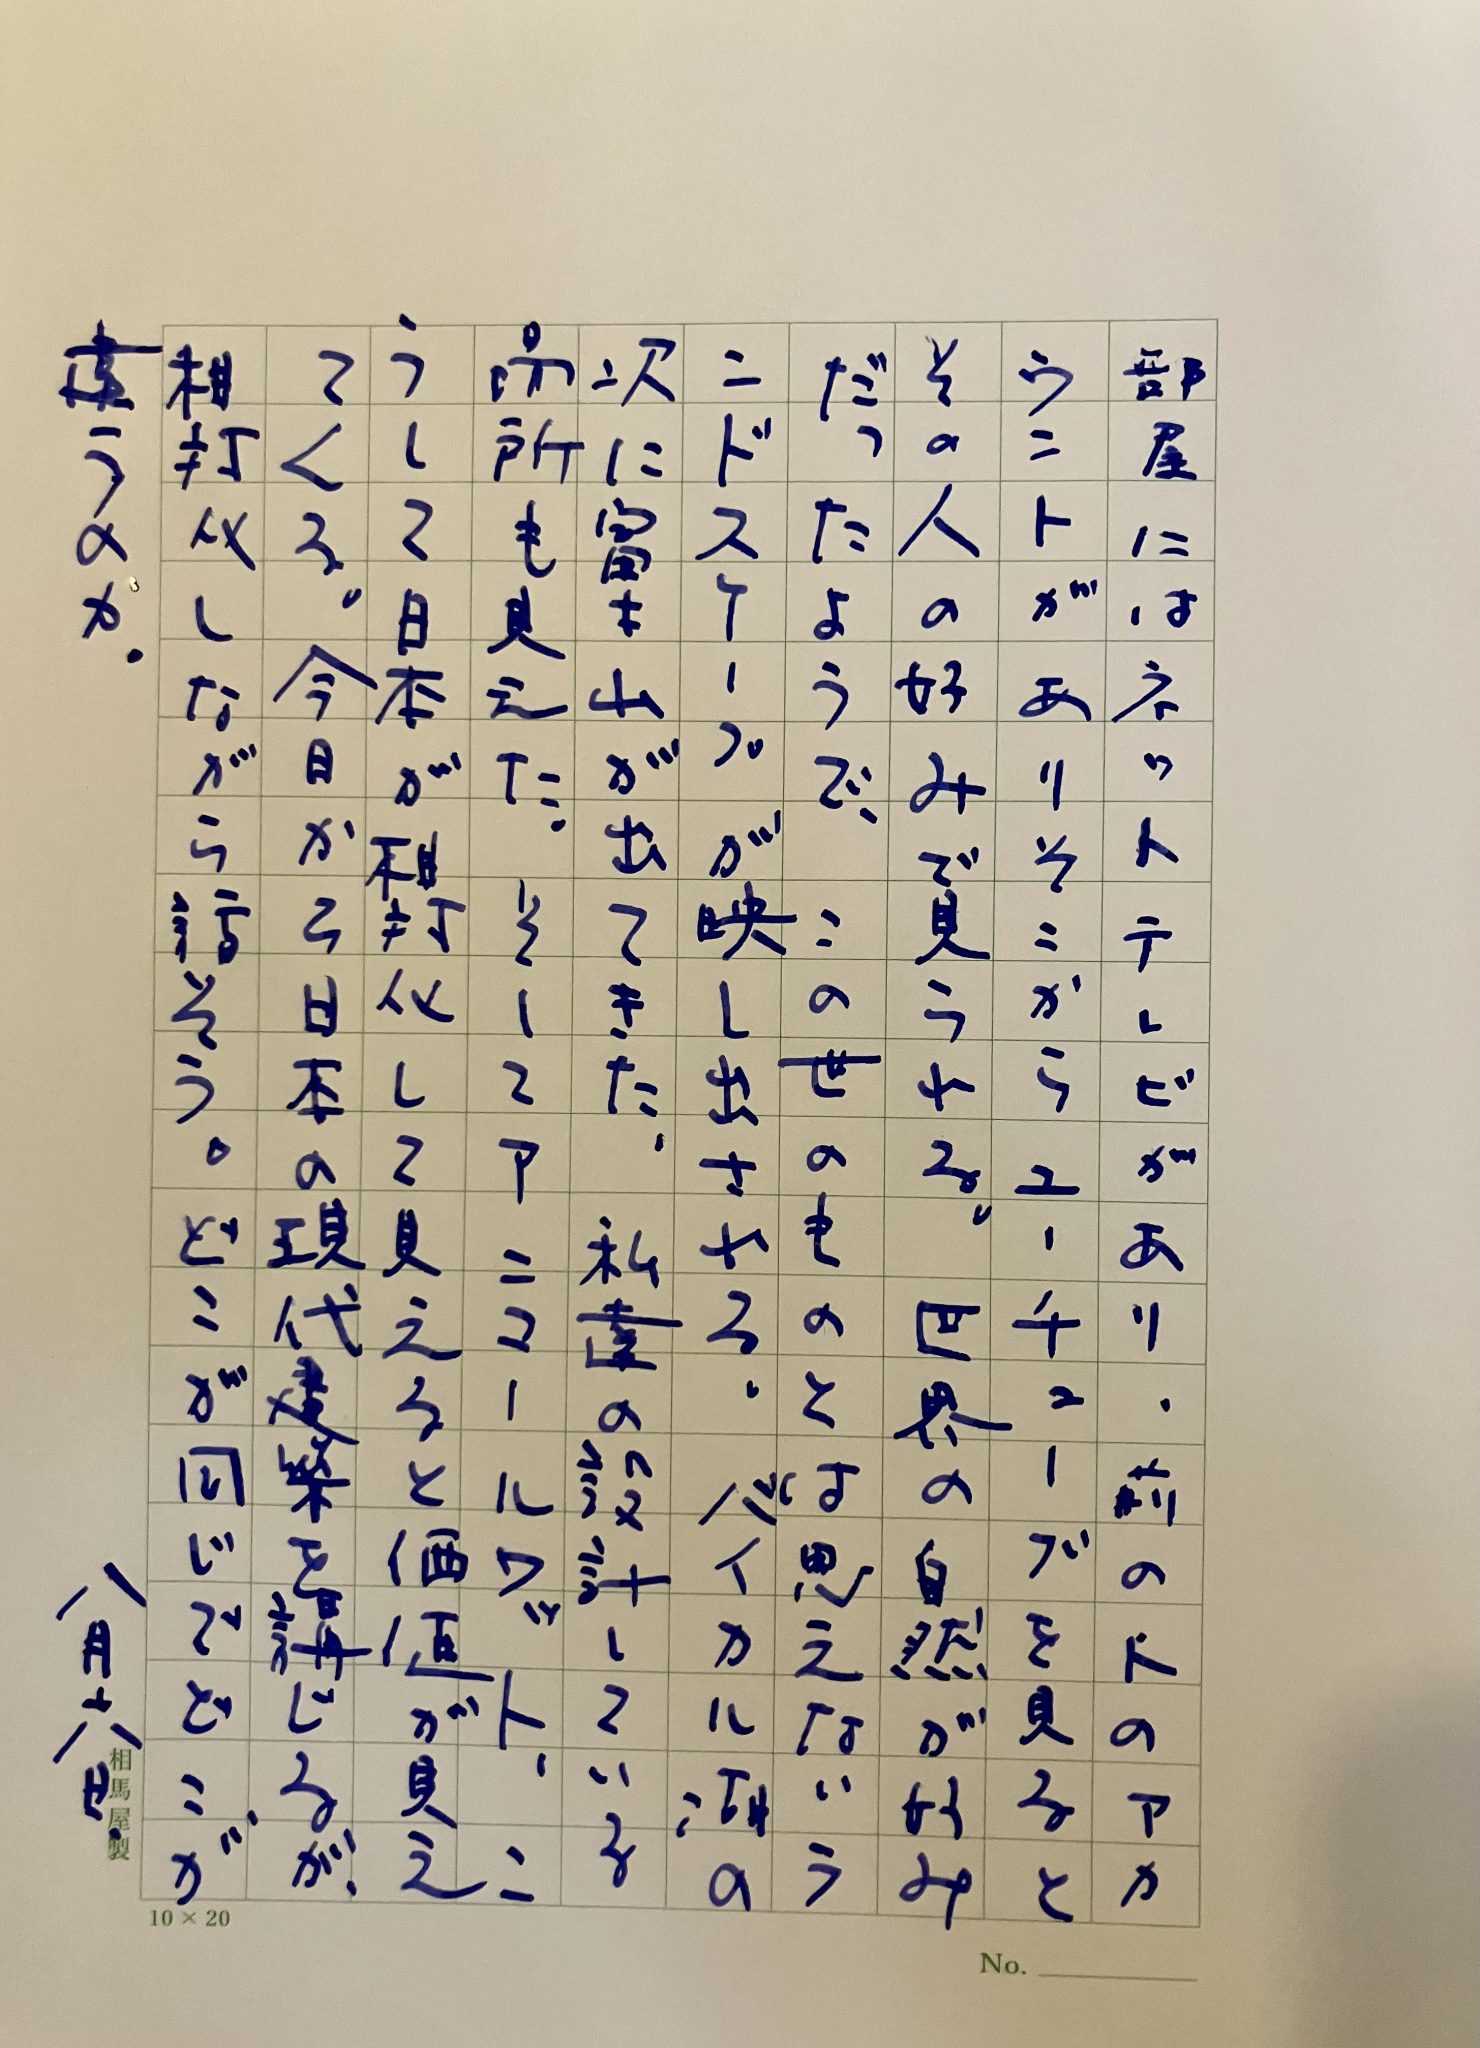 部屋にはネットテレビがあり、前の人のアカ
ウントがありそこからユーチューブを見ると
その人の好みで見られる。世界の自然が好み
だったようで、この世のものとは思えないラ
ンドスケープが映し出される。バイカル湖の
次に富士山が出てきた、私達の設計している
所も見えた。そしてアンコールワット、こ
うして日本が相対化して見えると価値が見え
てくる。今日から日本の現代建築を講じるが、
相対化しながら話そう。どこが同じでどこが
違うのか。
八月十八日
相馬屋製
10×20
No.